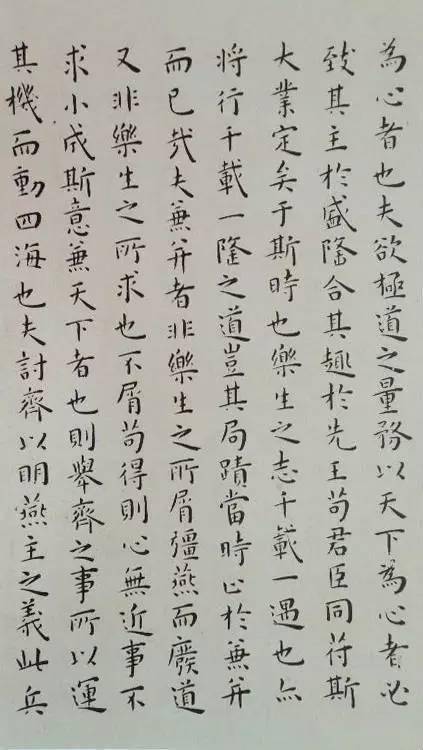 為心者也夫欲極道之量務以天下為心者必
致其主於盛隆合其趣於先王苟君臣同苻斯
大業定矣于斯時也樂生之志千載一遇也亦
將行千載一隆之道豈其局蹟當時止於兼并
而已哉夫兼并者非樂生之所屑彊燕而廢道
又非樂生之所求也不屑苟得則心無近事不
求小成斯意兼天下者也則舉齊之事所以運
其機而動四海也夫討齊以明燕主之義此兵